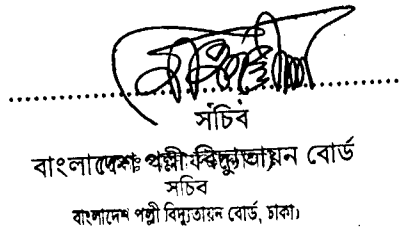 সচিব
বাংলাদেশ পল্লী বিদ্যুতায়ন বোর্ড
সচিব
বাংলাদেশ পল্লী বিদ্যুতায়ন বোর্ড, ঢাকা।